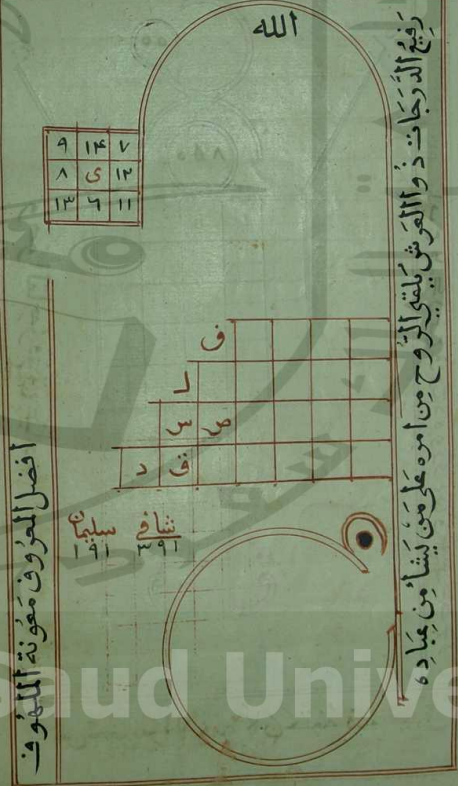 الله
رَفِيعُ الدَّرَجَاتِ ذُوا العَرْشِ يُلْقِي الرُّوحَ مِنْ أمرِهِ عَلَى مَنْ يَشَاءُ مِنْ عِبَادِهِ
٩ ١٤ ٧
٨ ى ١٢
١٣ ٦ ١١
ف
س ص
د ق
سليمان شافي
١٩١ ٣٩١
افضل المعروف معونة الملهوف
Saud Unive